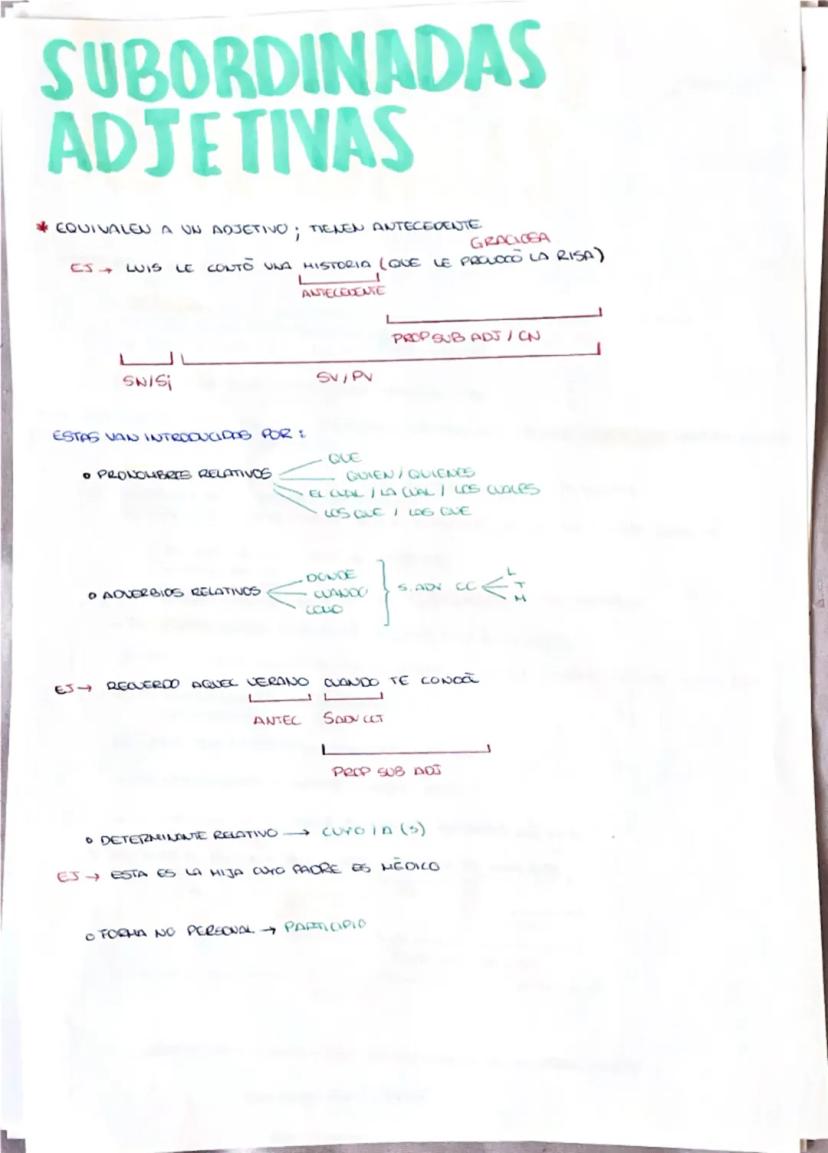 SUBORDINADAS
ADJETIVAS
* EQUIVALEN A UN ADJETIVO; TIENEN ANTECEDENTE
GRACIOSA
EJ → LUIS LE CONTÓ UNA HISTORIA (QUE LE PROVOCÓ LA RISA)
ANTECEDENTE
PROP SUB ADJ / CN
SN/Sj SV/PV
ESTAS VAN INTRODUCIDAS POR:
• PRONOMBRES RELATIVOS
QUE
QUIEN / QUIENES
EL CUAL / LA CUAL / LOS CUALES
LOS QUE / LAS QUE
• ADVERBIOS RELATIVOS
DONDE
CUANDO
COMO
S. ADV CC
L
T
M
EJ → RECUERDO AQUEL VERANO CUANDO TE CONOCÍ
ANTEC SADV CCT
PROP SUB ADJ
• DETERMINANTE RELATIVO → CUYO/A (S)
EJ → ESTA ES LA HIJA CUYO PADRE ES MÉDICO
• FORMA NO PERSONAL → PARTICIPIO